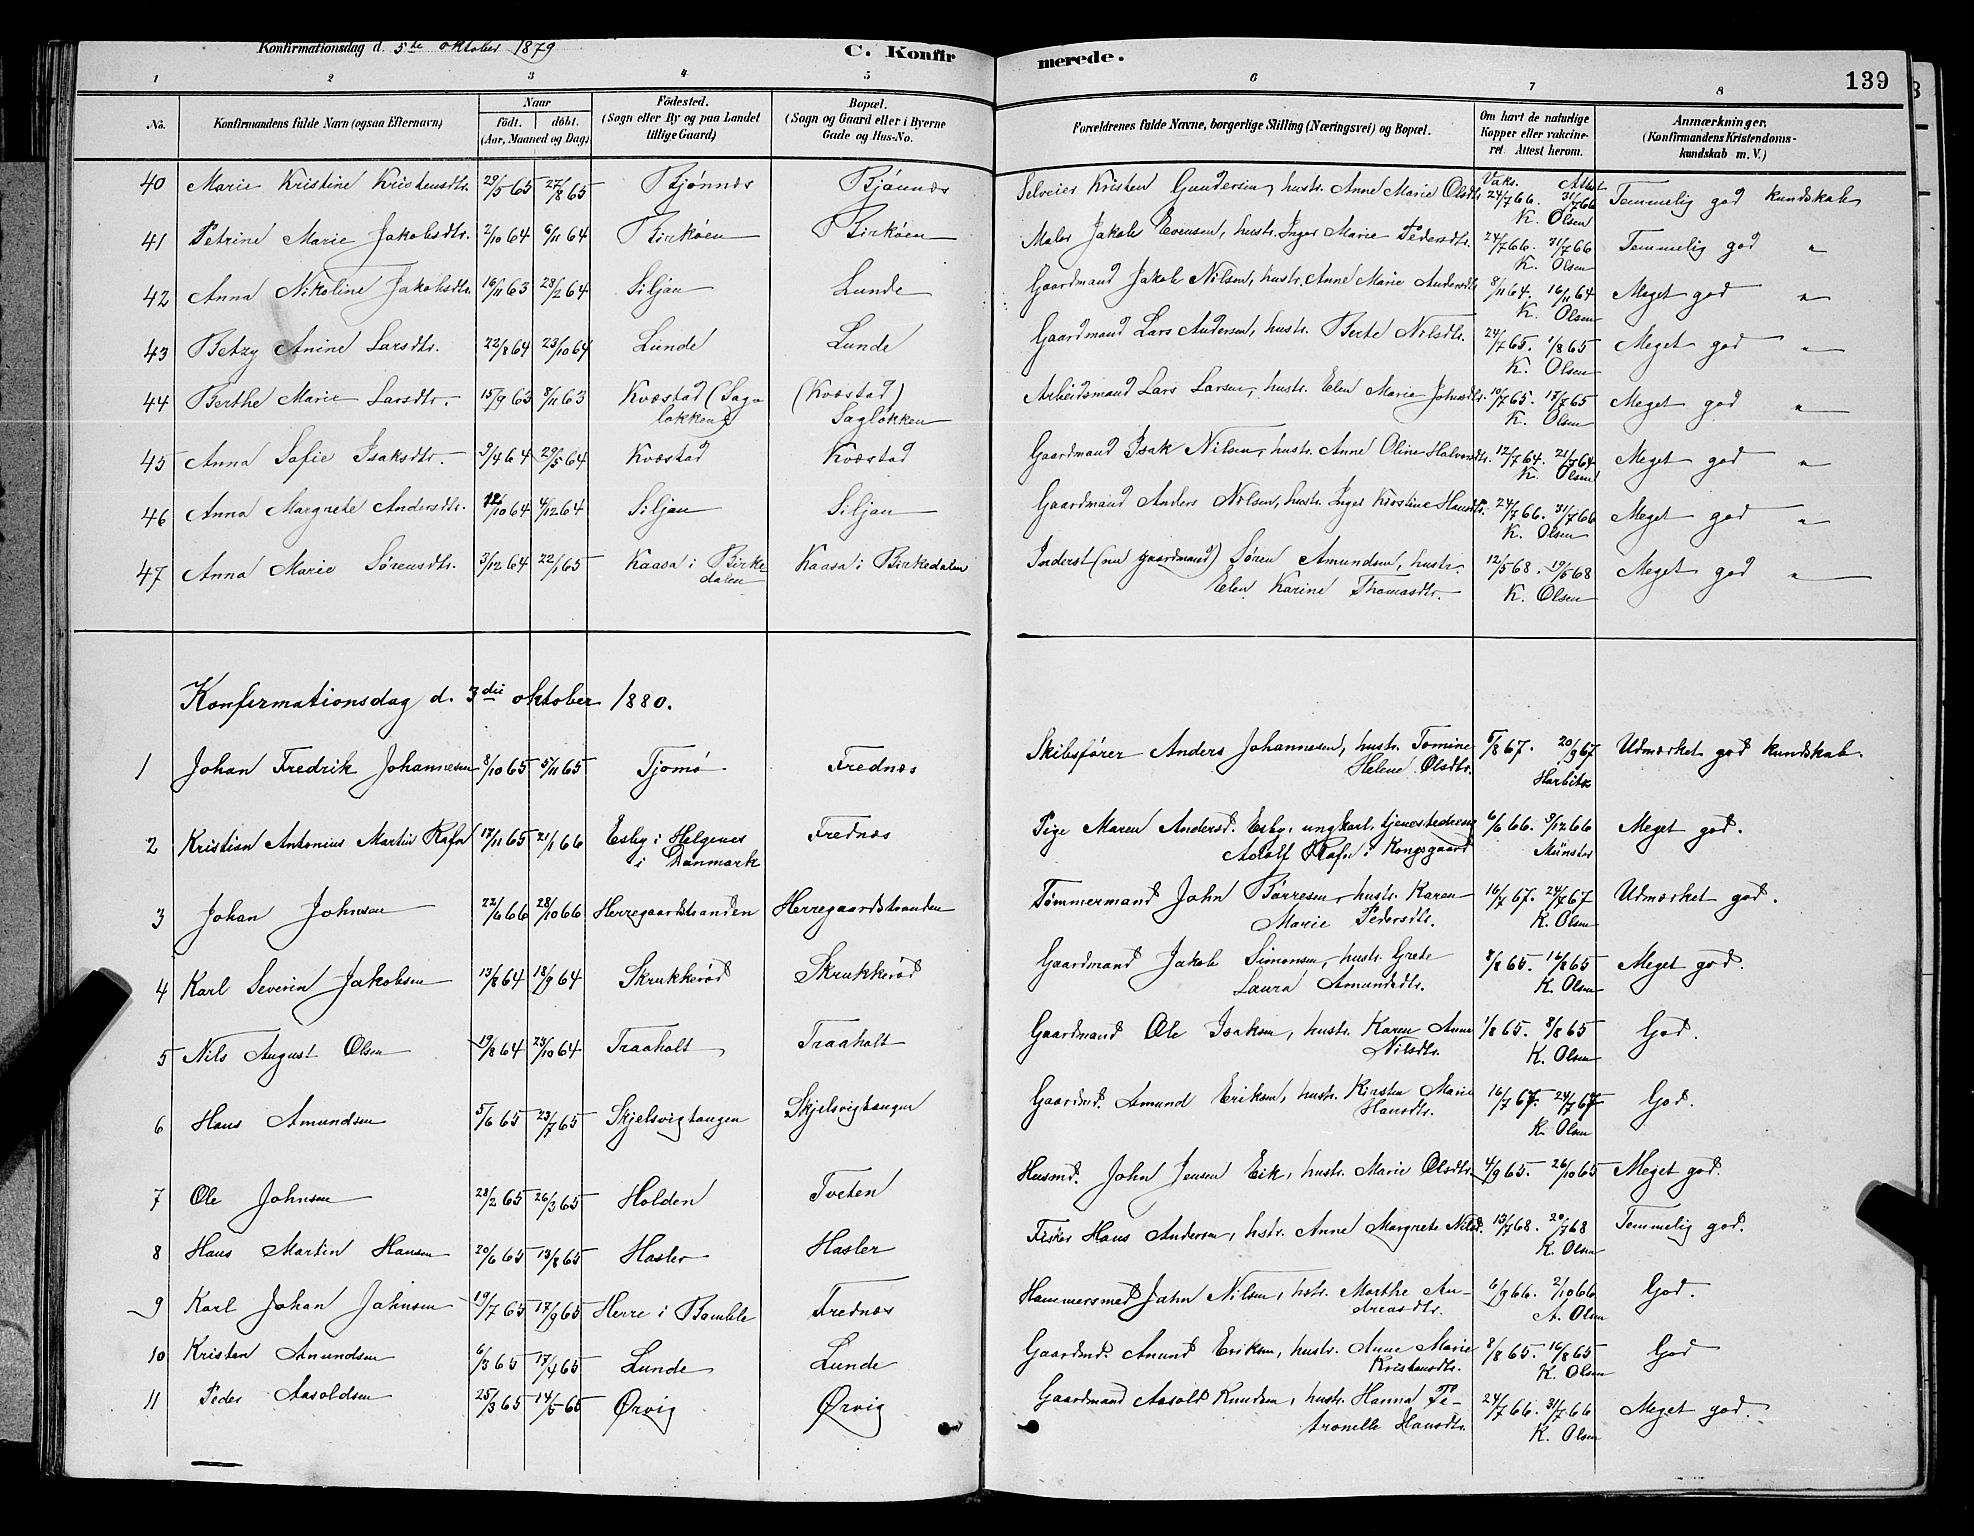 Konfirmationsdag d. 5te oktober 1879 C. Konfir merede. 139
1 2 3 4 5 6 7 8
No. Konfirmandens fulde Navn (ogsaa Efternavn) Naar födt. döbt. (Aar, Maaned og Dag) Födested. (Sogn eller By og paa Landet tillige Gaard) Bopæl. (Sogn og Gaard eller i Byerne Gade og Hus-No. Forældrenes fulde Navne, borgerlige Stilling (Næringsvei) og Bopæl. Om havt de naturlige Kopper eller vakcineret. Attest herom. Anmærkninger. (Konfirmandens Kristendomskundskab m. V.)
Vaks. Attest
40 Marie Kristine Kristensdtr. 29/5 65 27/8 65 Bjønnes Bjønnes Selveier Kristen Gundersen, hustr. Anne Marie Olsdtr. 24/7 66. 31/7 66 Temmelig god kundskab
K. Olsen
41 Petrine Marie Jakobsdtr. 2/10 64 6/11 64 Birkøen Birkøen Maler Jakob Evensen, hustr. Inger Marie Pedersdtr. 24/7 66. 31/7 66 Temmelig god "
K. Olsen
42 Anna Nikoline Jakobsdtr. 16/11 63 28/2 64 Siljan Lunde Gaardmand Jakob Nilsen, hustr. Anne Marie Andersdtr. 8/11 64. 16/11 64 Meget god "
K. Olsen
43 Betzy Anine Larsdtr. 22/8 64 23/10 64 Lunde Lunde Gaardmand Lars Andersen, hustr. Berte Nilsdtr. 24/7 65. 1/8 65 Meget god "
K. Olsen
44 Berthe Marie Larsdtr. 15/9 63 8/11 63 Kvæstad (Sag- (Kvæstad) Arbeidsmand Lars Larsen, hustr. Elen Marie Johnsdtr. 10/7 65. 17/7 65 Meget god "
løkken) Sagløkken K. Olsen
45 Anna Sofie Isaksdtr. 9/4 64 29/5 64 Kvæstad Kvæstad Gaardmand Isak Nilsen, hustr. Anne Oline Halvorsdtr. 12/7 64. 21/7 64 Meget god "
K. Olsen
46 Anna Margrete Andersdtr. 12/10 64 4/12 64 Siljan Siljan Gaardmand Anders Nilsen, hustr. Inger Kirstine Hansdtr. 24/7 66. 31/7 66 Meget god "
K. Olsen
47 Anna Marie Sørensdtr. 3/12 64 22/1 65 Kaasa i Birke Kaasa i Birkedalen Inderst (nu gaardmand) Søren Amundsen, hustr. 12/5 68. 19/5 68 Meget god "
dalen Elen Karine Thomasdtr. K. Olsen
Konfirmationsdag d. 3die oktober 1880.
1 Johan Fredrik Johannesen 8/10 65 5/11 65 Tjømø Frednæs Skibsfører Anders Johannesen, hustr. Tomine 5/8 67. 20/9 67 Udmærket god kundskab.
Helene Olsdtr. Harbitz
2 Kristian Antonius Martin Rafn 17/11 65 21/1 66 Esby i Helgenes Frednæs Pige Maren Andersd. Esby, ungkarl, tjenestedreng 6/6 66. 9/12 66 Meget god.
i Danmark Adolf Rafn i Kongsgaard Münster
3 Johan Johnsen 22/6 66 28/10 66 Herregaardstranden Herregaardstranden Tømmermand John Børresen, hustr. Karen 16/7 67. 24/7 67 Udmærket god.
Marie Pedersdtr. K. Olsen
4 Karl Severin Jakobsen 13/8 64 18/9 64 Skrukkerød Skrukkerød Gaardmand Jakob Simonsen, hustr. Grete 8/8 65. 16/8 65 Meget god.
Laura Amundsdtr. K. Olsen
5 Nils August Olsen 19/8 64 23/10 64 Traaholt Traaholt Gaardmand Ole Isaksen, hustr. Karen Anne 1/8 65. 8/8 65 God.
Nilsdtr. K. Olsen
6 Hans Amundsen 5/6 65 23/7 65 Skjelsvigtangen Skjelsvigtangen Gaardmd. Amund Eriksen, hustr. Kirsten Marie 16/7 67. 24/7 67 God.
Hansdtr. K. Olsen
7 Ole Johnsen 28/2 65 26/3 65 Holden Tveten Husmd. John Jensen Eik, hustr. Marie Olsdtr. 4/9 65. 26/10 65 Meget god.
8 Hans Martin Hansen 20/6 65 13/8 65 Hasler Hasler Fisker Hans Andersen, hstr. Anne Margrete Nilsd. 13/7 68. 20/7 68 Temmelig god.
K. Olsen
9 Karl Johan Johnsen 19/7 65 17/9 65 Herre i Bamble Frednæs Hammersmed John Nilsen, hstr. Marthe An- 6/9 66. 2/10 66 God.
dreasdtr. A. Olsen
10 Kristen Amundsen 6/3 65 17/4 65 Lunde Lunde Gaardmd. Amund Eriksen, hustr. Anne Marie 8/8 65. 16/8 65 God
Kristensdtr. K. Olsen
11 Peder Aasoldsen 25/3 65 14/5 65 Ørvig Ørvig Gaardmand Aasold Knudsen, hustr. Hanna Pe- 24/7 66. 31/7 66 Meget god.
tronelle Hansdtr. K. Olsen